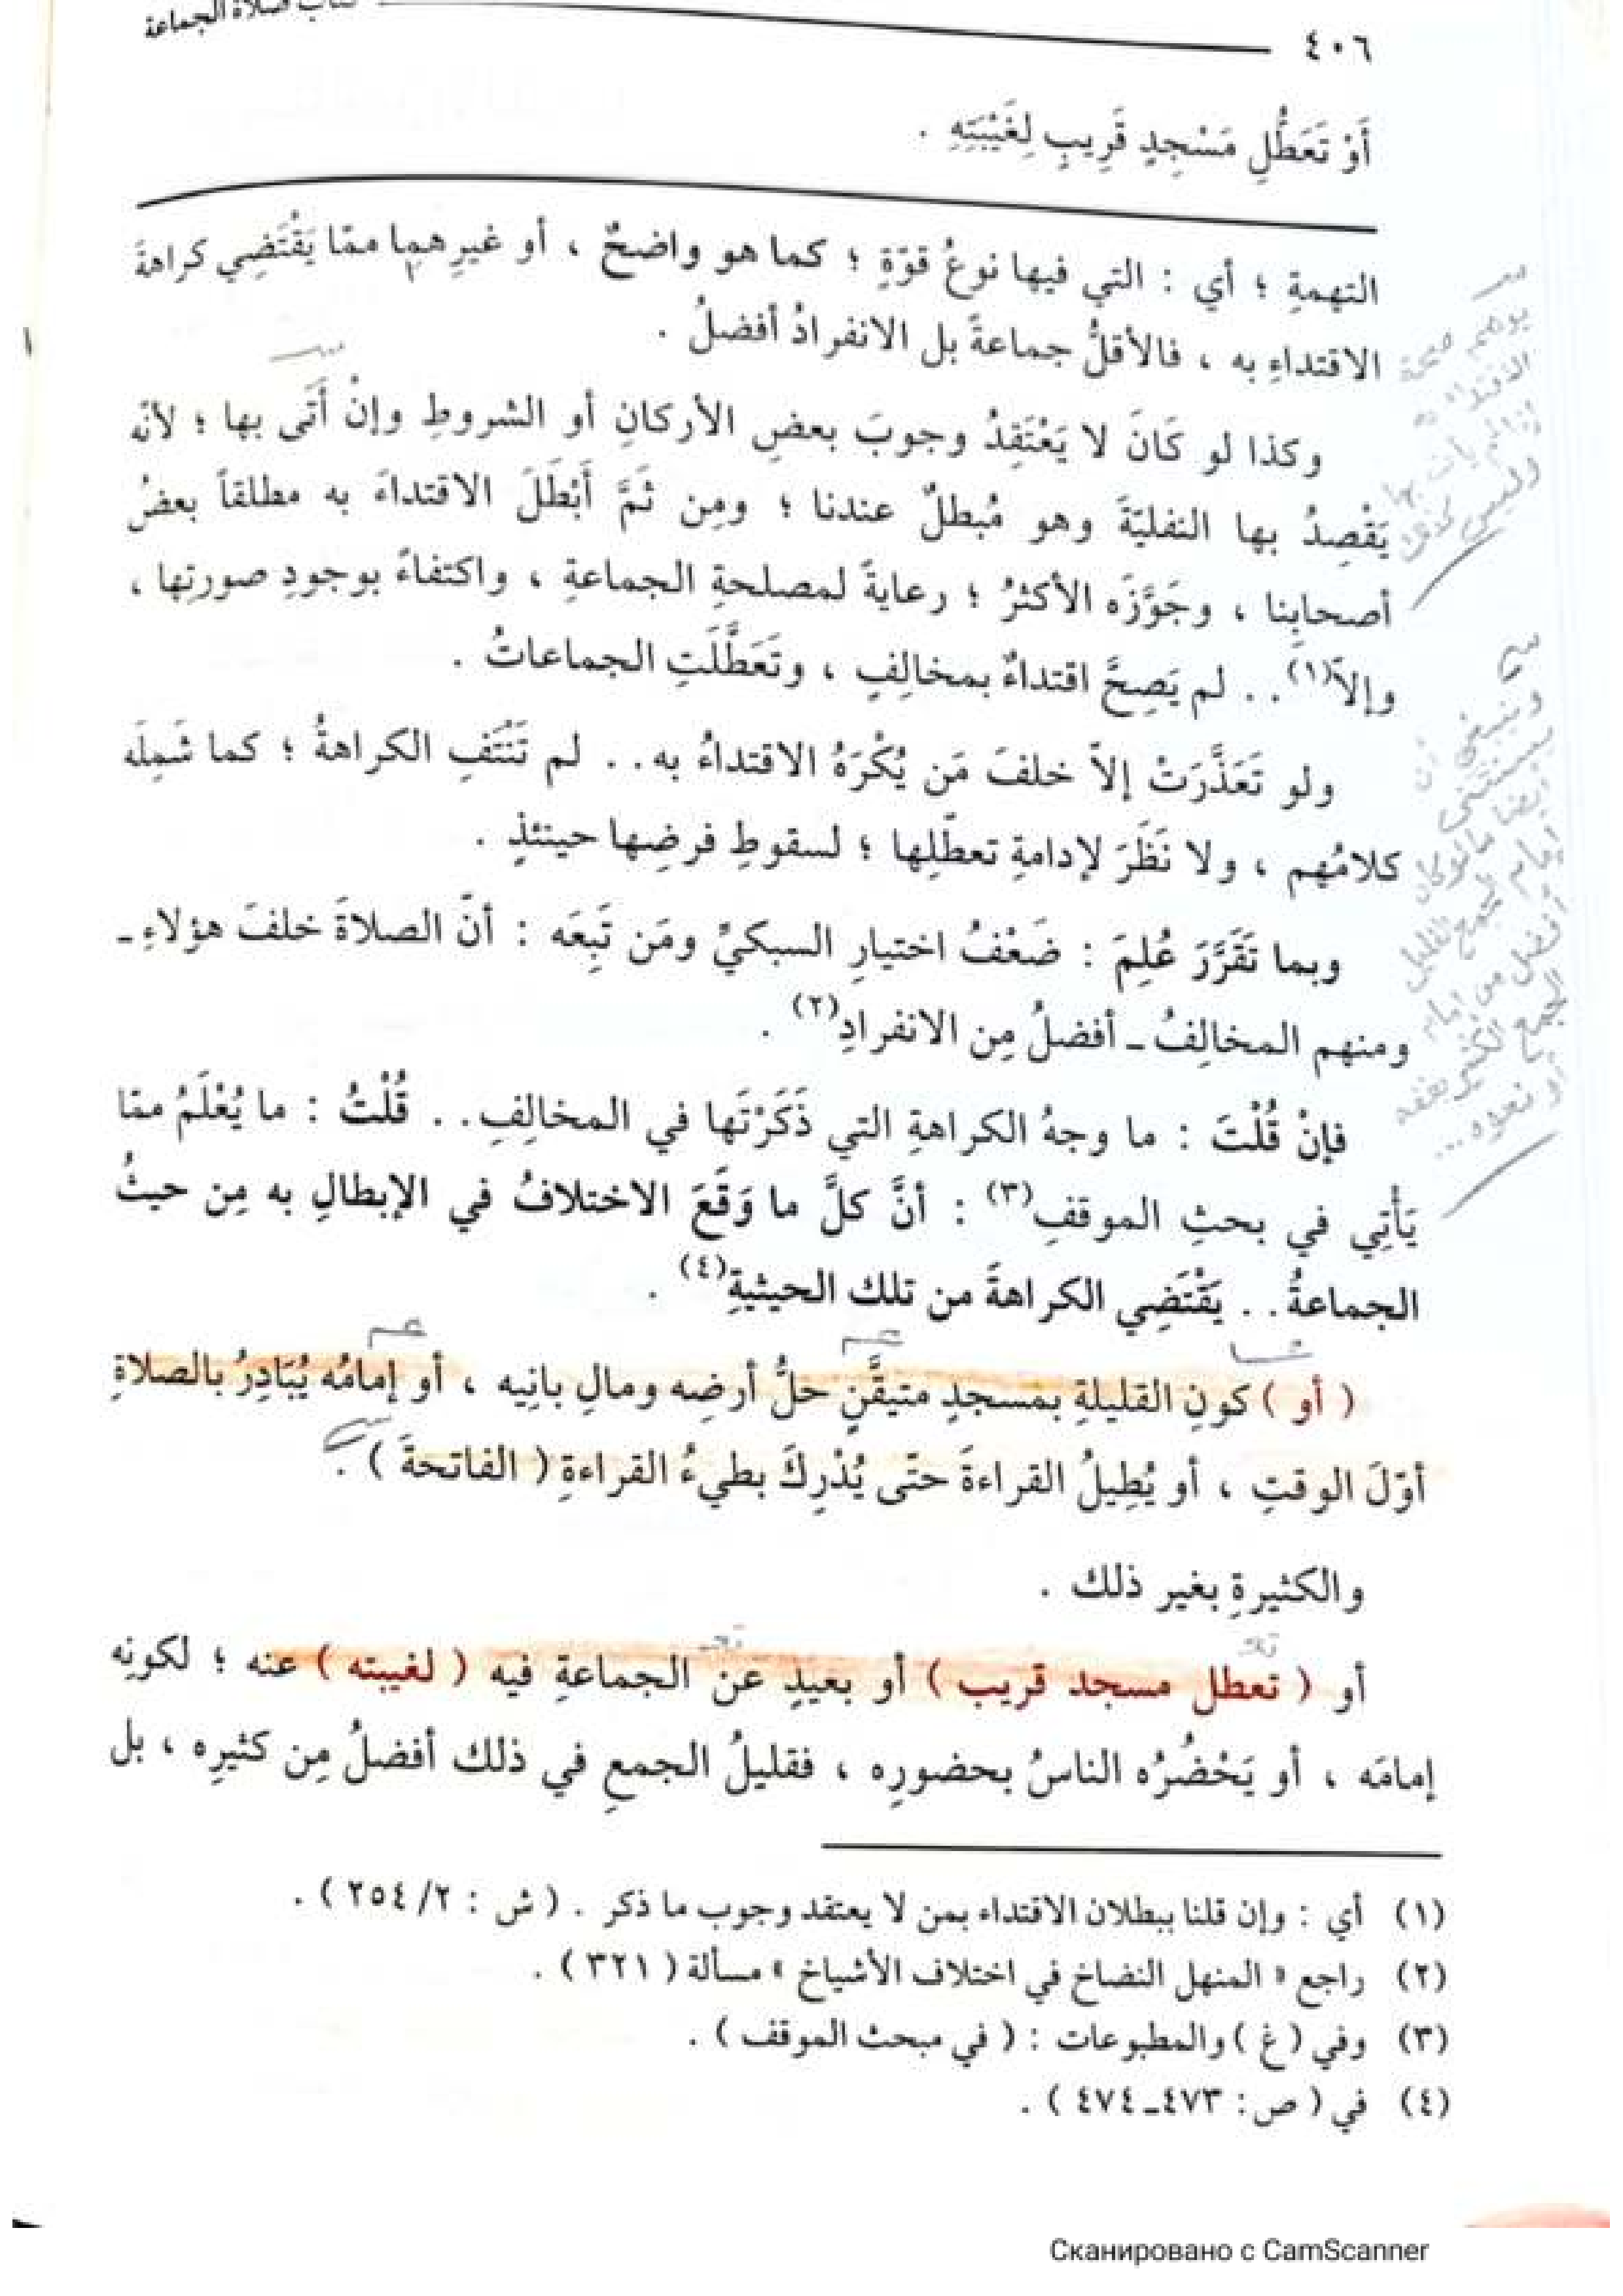 ٤٠٦
كتاب صلاة الجماعة
أَوْ تَعَطُّلِ مَسْجِدٍ قَرِيبٍ لِغَيْبَتِهِ .
التهمةِ ؛ أي : التي فيها نوعُ قوّةٍ ؛ كما هو واضحٌ ، أو غيرِهما ممّا يَقْتَضِي كراهةَ
الاقتداءِ به ، فالأقلُّ جماعةً بل الانفرادُ أفضلُ .
وكذا لو كَانَ لا يَعْتَقِدُ وجوبَ بعضِ الأركانِ أو الشروطِ وإنْ أَتَى بها ؛ لأنّه
يَقْصِدُ بها النفليّةَ وهو مُبطلٌ عندنا ؛ ومِن ثَمَّ أَبْطَلَ الاقتداءَ به مطلقاً بعضُ
أصحابِنا ، وجَوَّزَه الأكثرُ ؛ رعايةً لمصلحةِ الجماعةِ ، واكتفاءً بوجودِ صورتِها ،
وإلاّ(١) . . لم يَصِحَّ اقتداءٌ بمخالِفٍ ، وتَعَطَّلَتِ الجماعاتُ .
ولو تَعَذَّرَتْ إلاّ خلفَ مَن يُكْرَهُ الاقتداءُ به . . لم تَنْتَفِ الكراهةُ ؛ كما شَمِلَه
كلامُهم ، ولا نَظَرَ لإدامةِ تعطّلِها ؛ لسقوطِ فرضِها حينئذٍ .
وبما تَقَرَّرَ عُلِمَ : ضَعْفُ اختيارِ السبكيِّ ومَن تَبِعَه : أنّ الصلاةَ خلفَ هؤلاءِ -
ومنهم المخالِفُ - أفضلُ مِن الانفرادِ(٢) .
فإنْ قُلْتَ : ما وجهُ الكراهةِ التي ذَكَرْتَها في المخالِفِ . . قُلْتُ : ما يُعْلَمُ ممّا
يَأْتِي في بحثِ الموقفِ(٣) : أنَّ كلَّ ما وَقَعَ الاختلافُ في الإبطالِ به مِن حيثُ
الجماعةُ . . يَقْتَضِي الكراهةَ من تلك الحيثيةِ(٤) .
( أو ) كونِ القليلةِ بمسجدٍ متيقَّنٍ حلُّ أرضِه ومالِ بانِيه ، أو إمامُه يُبَادِرُ بالصلاةِ
أوّلَ الوقتِ ، أو يُطِيلُ القراءةَ حتّى يُدْرِكَ بطيءُ القراءةِ ( الفاتحةَ ) .
والكثيرةِ بغير ذلك .
أو ( تعطل مسجد قريب ) أو بعيدٍ عن الجماعةِ فيه ( لغيبته ) عنه ؛ لكونِه
إمامَه ، أو يَحْضُرُه الناسُ بحضورِه ، فقليلُ الجمعِ في ذلك أفضلُ مِن كثيرِه ، بل
(١) أي : وإن قلنا ببطلان الاقتداء بمن لا يعتقد وجوب ما ذكر . ( ش : ٢/ ٢٥٤ ) .
(٢) راجع « المنهل النضاخ في اختلاف الأشياخ » مسألة ( ٣٢١ ) .
(٣) وفي ( غ ) والمطبوعات : ( في مبحث الموقف ) .
(٤) في ( ص : ٤٧٣-٤٧٤ ) .
Сканировано с CamScanner